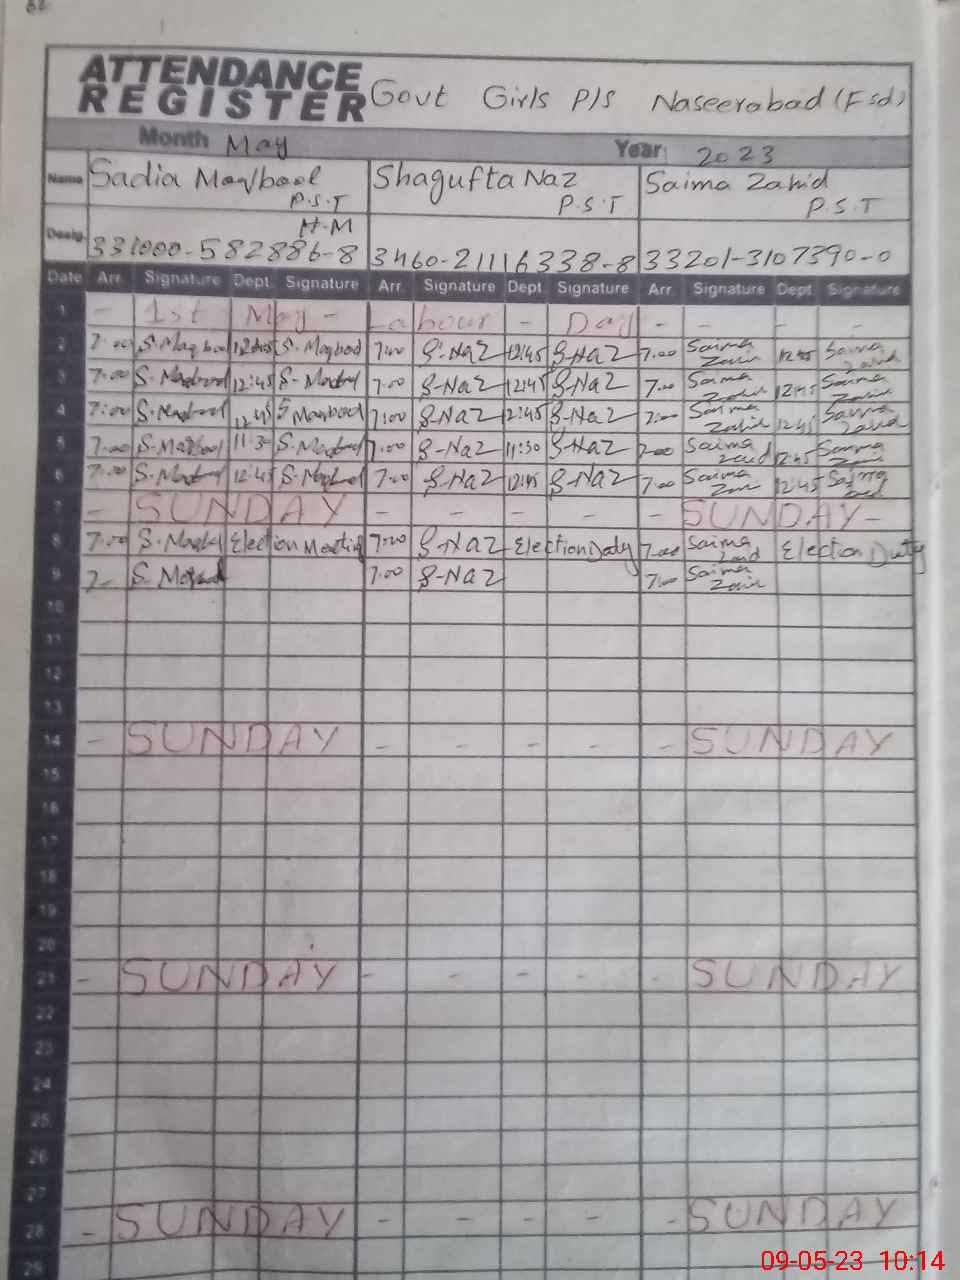 ATTENDANCE
REGISTER Govt Girls P/S Naseerabad (Fsd)
Month May Year 2023
Name Sadia Maqbool Shagufta Naz Saima Zahid
P.S.T P.S.T P.S.T
H.M
Desig. 331000-582886-8 3460-21116338-8 33201-3107390-0
Date Arr. Signature Dept. Signature Arr. Signature Dept. Signature Arr. Signature Dept. Signature
1 - 1st May - Labour - Day - - - -
2 7:00 S.Maqbool 12:45 S.Maqbool 7:00 S-Naz 12:45 S-Naz 7:00 Saima Zahid 12:45 Saima Zahid
3 7:00 S.Maqbool 12:45 S-Maqbool 7:00 S-Naz 12:45 S-Naz 7:00 Saima Zahid 12:45 Saima Zahid
4 7:00 S.Maqbool 12:45 S Maqbool 7:00 S-Naz 12:45 S-Naz 7:00 Saima Zahid 12:45 Saima Zahid
5 7:00 S.Maqbool 11:30 S.Maqbool 7:00 S-Naz 11:30 S-Naz 7:00 Saima Zahid 12:45 Saima Zahid
6 7:00 S.Maqbool 12:45 S.Maqbool 7:00 S-Naz 12:45 S-Naz 7:00 Saima Zahid 12:45 Saima Zahid
7 - SUNDAY - - - - - SUNDAY -
8 7:00 S.Maqbool Election Meeting 7:00 S-Naz Election Duty 7:00 Saima Zahid Election Duty
9 7- S.Maqbool 7:00 S-Naz 7:00 Saima Zahid
10
11
12
13
14 - SUNDAY - - - - - SUNDAY
15
16
17
18
19
20
21 - SUNDAY - - - - - SUNDAY
22
23
24
25
26
27
28 - SUNDAY - - - - - SUNDAY
29
09-05-23 10:14